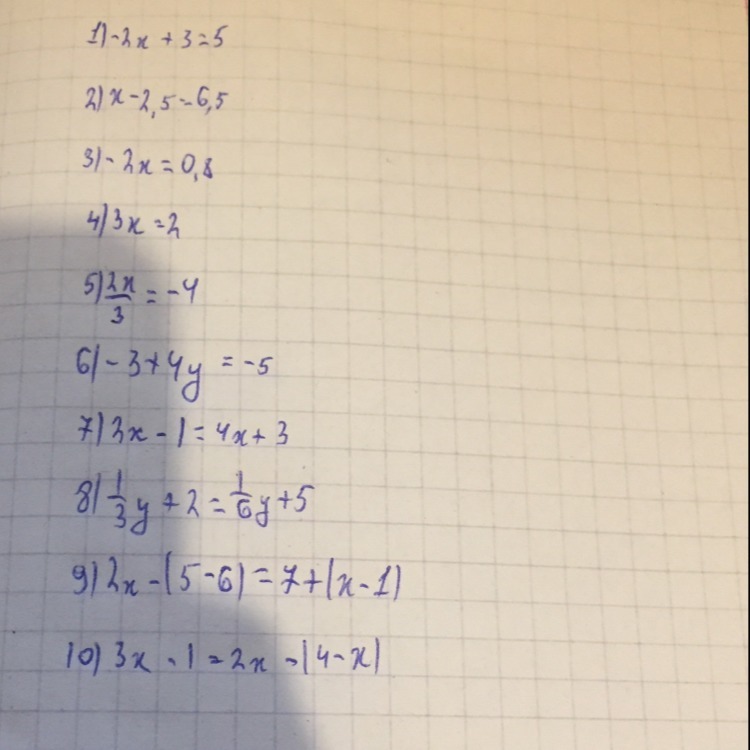 1) -2x + 3 = 5
2) x - 2,5 = 6,5
3) - 2x = 0,8
4) 3x = 2
5) 2x/3 = -4
6) - 3 + 4y = -5
7) 2x - 1 = 4x + 3
8) 1/3 y + 2 = 1/6 y + 5
9) 2x - (5 - 6) = 7 + (x - 1)
10) 3x - 1 = 2x - (4 - x)